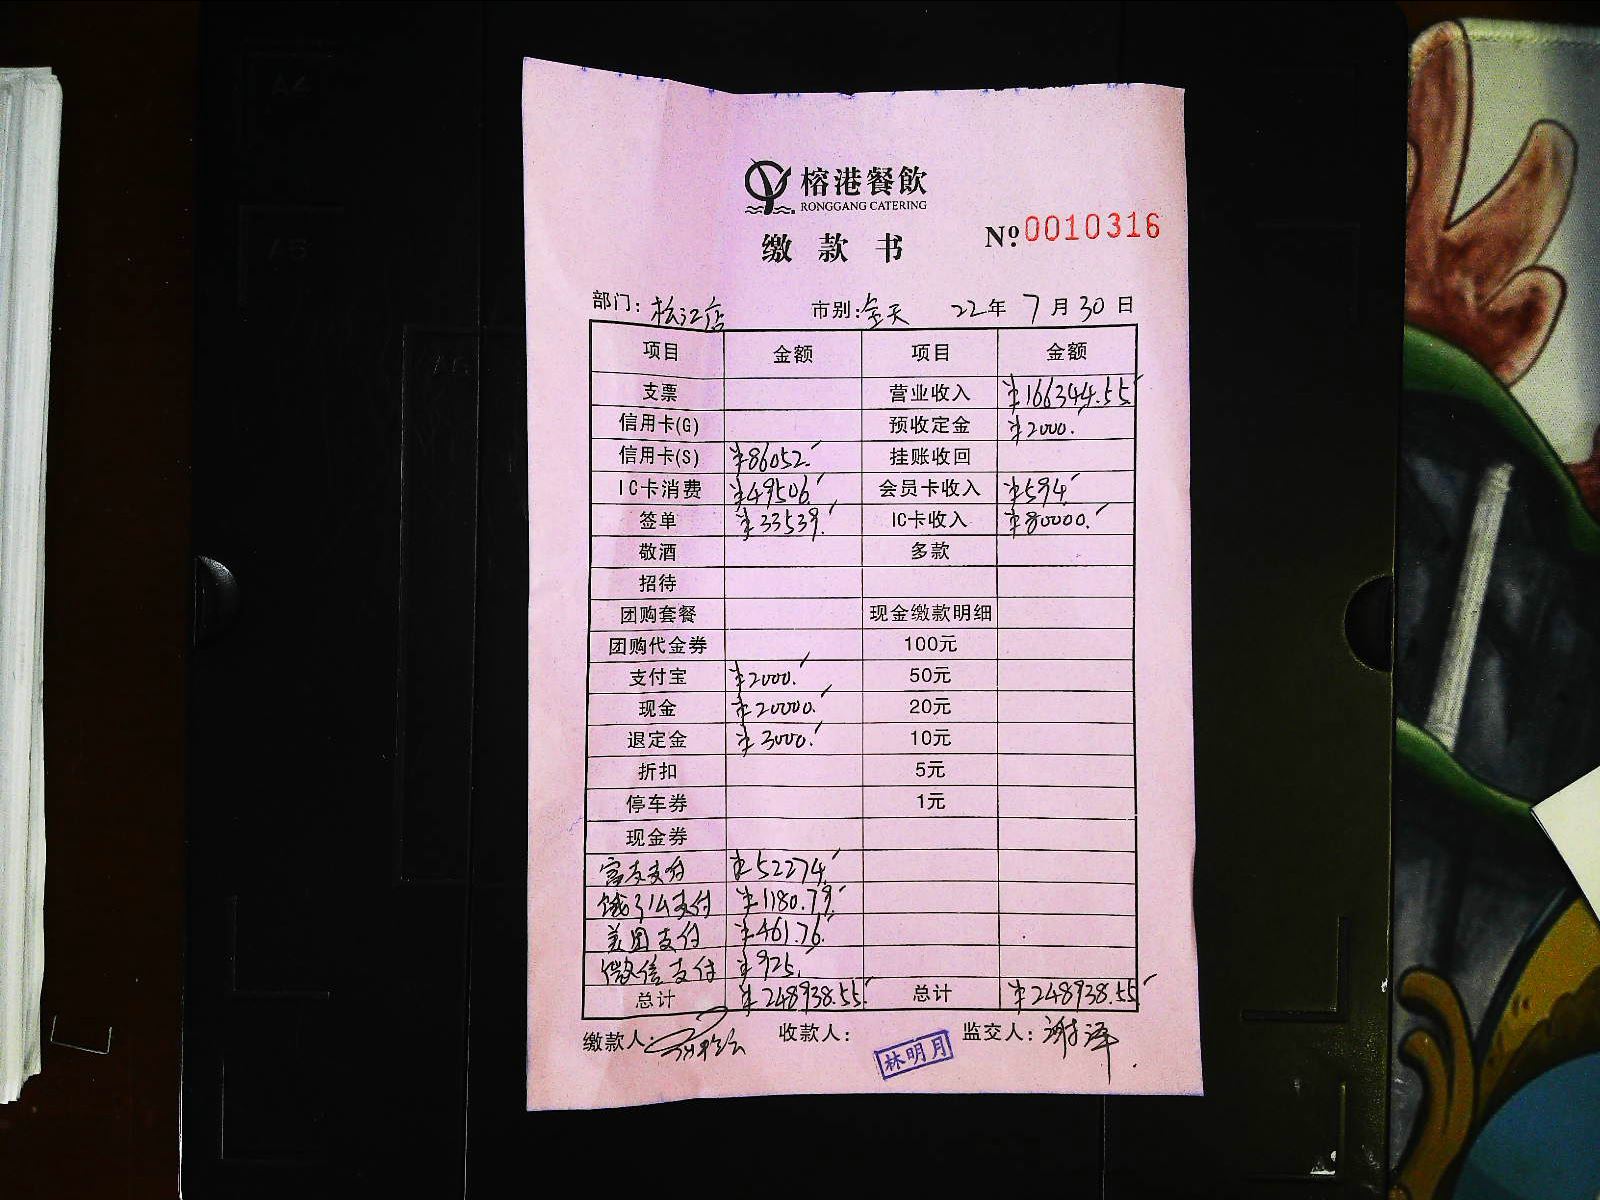 榕港餐飲
RONGGANG CATERING
缴款书 Nº 0010316
部门: 松江店 市别: 全天 22年 7月 30日
项目 金额 项目 金额
支票 营业收入 ¥166344.55
信用卡(G) 预收定金 ¥2000.
信用卡(S) ¥86052. 挂账收回
IC卡消费 ¥49506. 会员卡收入 ¥594.
签单 ¥33539. IC卡收入 ¥80000.
敬酒 多款
招待
团购套餐 现金缴款明细
团购代金券 100元
支付宝 ¥2000. 50元
现金 ¥20000. 20元
退定金 ¥3000. 10元
折扣 5元
停车券 1元
现金券
富友支付 ¥52274.
饿了么支付 ¥1180.79
美团支付 ¥461.76
微信支付 ¥925.
总计 ¥248938.55 总计 ¥248938.55
缴款人: 收款人: 林明月 监交人: 谢泽
A4
A5